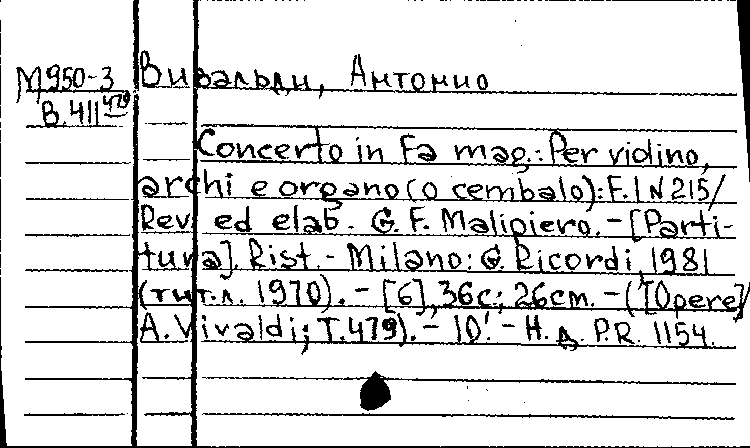 М950-3 Вивальди, Антонио
В.411 479
Concerto in Fa mag.: Per violino,
archi e organo (o cembalo): F.I N 215/
Rev. ed elab. G. F. Malipiero. – [Parti-
tura]. Rist. - Milano: G. Ricordi, 1981
(тит.л. 1970). – [6], 36с.; 26cm. – ([Opere]/
A. Vivaldi; T.479). – 10'. – Н. д. P.R. 1154.